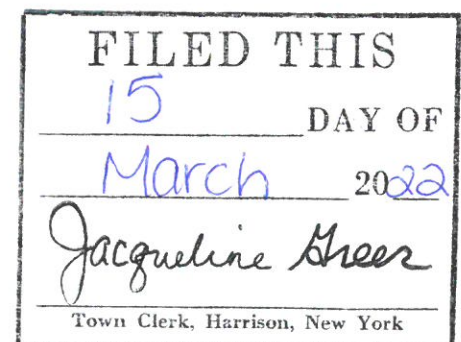 FILED THIS
15 DAY OF
March 2022
Jacqueline Greer
Town Clerk, Harrison, New York